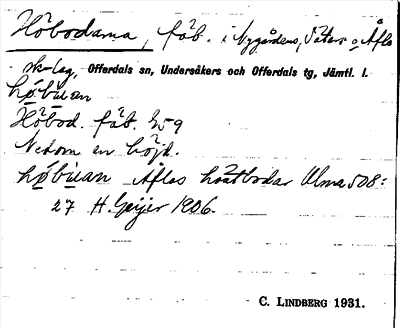 Höbodarna, fäb. i Nygårdens, Säters o Åflo
sk-lag, Offerdals sn, Undersåkers och Offerdals tg, Jämtl. l.
høbuan
Höbod. fäb. W 9
Nedom en höjd.
høbuan Åflos höstbodar Ulma 508:
27 H. Geijer 1906.
C. LINDBERG 1931.